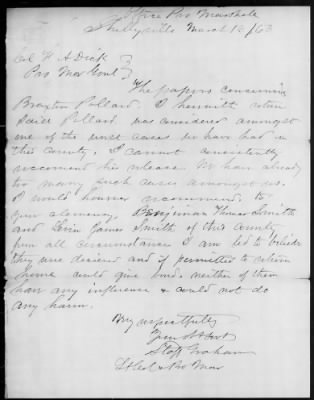 Office Pro Marshall
Shelbyville March 12/63
Col F A Dick
Pro Mar Genl
The papers concerning
Braxton Pollard. I herewith return
Said Pollard was considered amongst
one of the worst cases we have had in
this county. I cannot consistently
reccomend his release. We have already
too many such cases amongst us.
I would however reccomend to
your clemency, Benjiman Thomas Smith
and James Smith of this county
from all circumstances I am led to beleive
they were decieved and if permitted to return
home could give bond. neither of them
have any influence & could not do
any harm.
Very respectfully
Your Obt Svt
Graham
Lt Col & Pro Mar